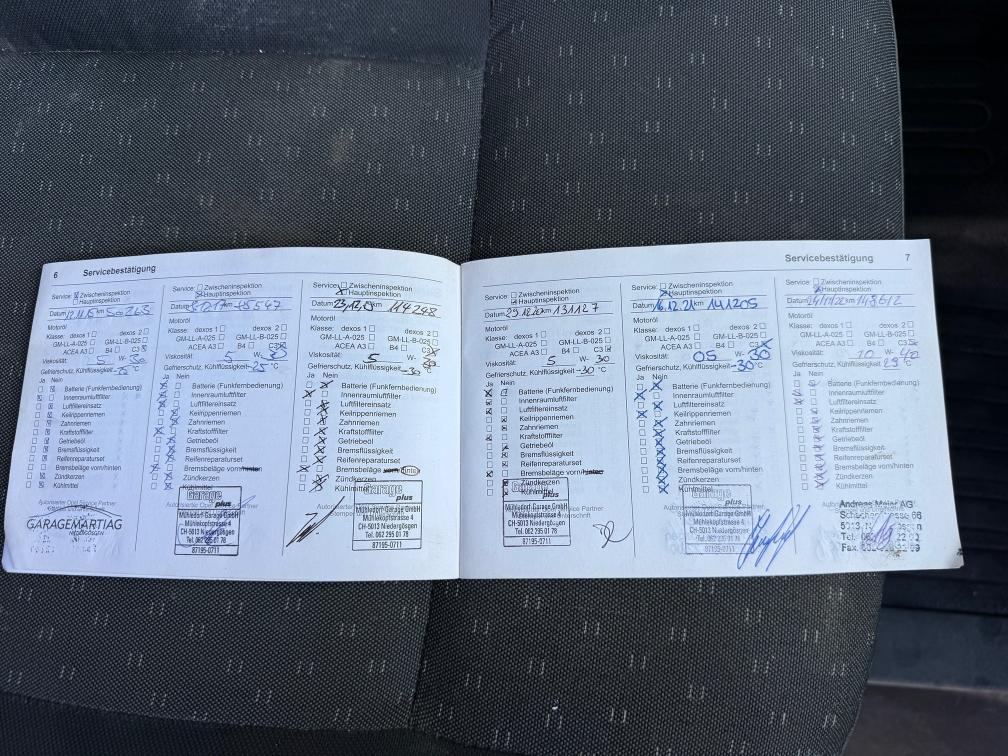 6 Servicebestätigung
Service: Zwischeninspektion
Hauptinspektion
Datum 12.11.15 km
Motoröl
Klasse: dexos 1 dexos 2
GM-LL-A-025 GM-LL-B-025
ACEA A3 B4 C3
Viskosität: 5 W- 30
Gefrierschutz, Kühlflüssigkeit -25 °C
Ja Nein
Batterie (Funkfernbedienung)
Innenraumluftfilter
Luftfiltereinsatz
Keilrippenriemen
Zahnriemen
Kraftstofffilter
Getriebeöl
Bremsflüssigkeit
Reifenreparaturset
Bremsbeläge vorn/hinten
Zündkerzen
Kühlmittel
Autorisierter Opel Service Partner
GARAGE MARTI AG
NIEDERGÖSGEN
Service: Zwischeninspektion
Hauptinspektion
Datum km
Motoröl
Klasse: dexos 1 dexos 2
GM-LL-A-025 GM-LL-B-025
ACEA A3 B4 C3
Viskosität: 5 W- 30
Gefrierschutz, Kühlflüssigkeit -25 °C
Ja Nein
Batterie (Funkfernbedienung)
Innenraumluftfilter
Luftfiltereinsatz
Keilrippenriemen
Zahnriemen
Kraftstofffilter
Getriebeöl
Bremsflüssigkeit
Reifenreparaturset
Bremsbeläge vorn/hinten
Zündkerzen
Kühlmittel
Garage plus
Mühledorf-Garage GmbH
Mühlekopfstrasse 4
CH-5013 Niedergösgen
Tel. 062 295 01 78
87195-0711
Service: Zwischeninspektion
Hauptinspektion
Datum km 114248
Motoröl
Klasse: dexos 1 dexos 2
GM-LL-A-025 GM-LL-B-025
ACEA A3 B4 C3
Viskosität: 5 W- 30
Gefrierschutz, Kühlflüssigkeit -30 °C
Ja Nein
Batterie (Funkfernbedienung)
Innenraumluftfilter
Luftfiltereinsatz
Keilrippenriemen
Zahnriemen
Kraftstofffilter
Getriebeöl
Bremsflüssigkeit
Reifenreparaturset
Bremsbeläge vorn/hinten
Zündkerzen
Kühlmittel
Garage plus
Mühledorf-Garage GmbH
Mühlekopfstrasse 4
CH-5013 Niedergösgen
Tel. 062 295 01 78
87195-0711
Servicebestätigung 7
Service: Zwischeninspektion
Hauptinspektion
Datum 29.12.20 km 131127
Motoröl
Klasse: dexos 1 dexos 2
GM-LL-A-025 GM-LL-B-025
ACEA A3 B4 C3
Viskosität: 5 W- 30
Gefrierschutz, Kühlflüssigkeit -30 °C
Ja Nein
Batterie (Funkfernbedienung)
Innenraumluftfilter
Luftfiltereinsatz
Keilrippenriemen
Zahnriemen
Kraftstofffilter
Getriebeöl
Bremsflüssigkeit
Reifenreparaturset
Bremsbeläge vorn/hinten
Zündkerzen
Kühlmittel
Garage plus
Mühledorf-Garage GmbH
Mühlekopfstrasse 4
CH-5013 Niedergösgen
Tel. 062 295 01 78
87195-0711
Service: Zwischeninspektion
Hauptinspektion
Datum 16.12.21 km 141205
Motoröl
Klasse: dexos 1 dexos 2
GM-LL-A-025 GM-LL-B-025
ACEA A3 B4 C3
Viskosität: 05 W- 30
Gefrierschutz, Kühlflüssigkeit -30 °C
Ja Nein
Batterie (Funkfernbedienung)
Innenraumluftfilter
Luftfiltereinsatz
Keilrippenriemen
Zahnriemen
Kraftstofffilter
Getriebeöl
Bremsflüssigkeit
Reifenreparaturset
Bremsbeläge vorn/hinten
Zündkerzen
Kühlmittel
Garage plus
Mühledorf-Garage GmbH
Mühlekopfstrasse 4
CH-5013 Niedergösgen
Tel. 062 295 01 78
87195-0711
Service: Zwischeninspektion
Hauptinspektion
Datum km 148612
Motoröl
Klasse: dexos 1 dexos 2
GM-LL-A-025 GM-LL-B-025
ACEA A3 B4 C3
Viskosität: 10 W- 40
Gefrierschutz, Kühlflüssigkeit °C
Ja Nein
Batterie (Funkfernbedienung)
Innenraumluftfilter
Luftfiltereinsatz
Keilrippenriemen
Zahnriemen
Kraftstofffilter
Getriebeöl
Bremsflüssigkeit
Reifenreparaturset
Bremsbeläge vorn/hinten
Zündkerzen
Kühlmittel
Andreas Meier AG
5013
Tel.
Fax.